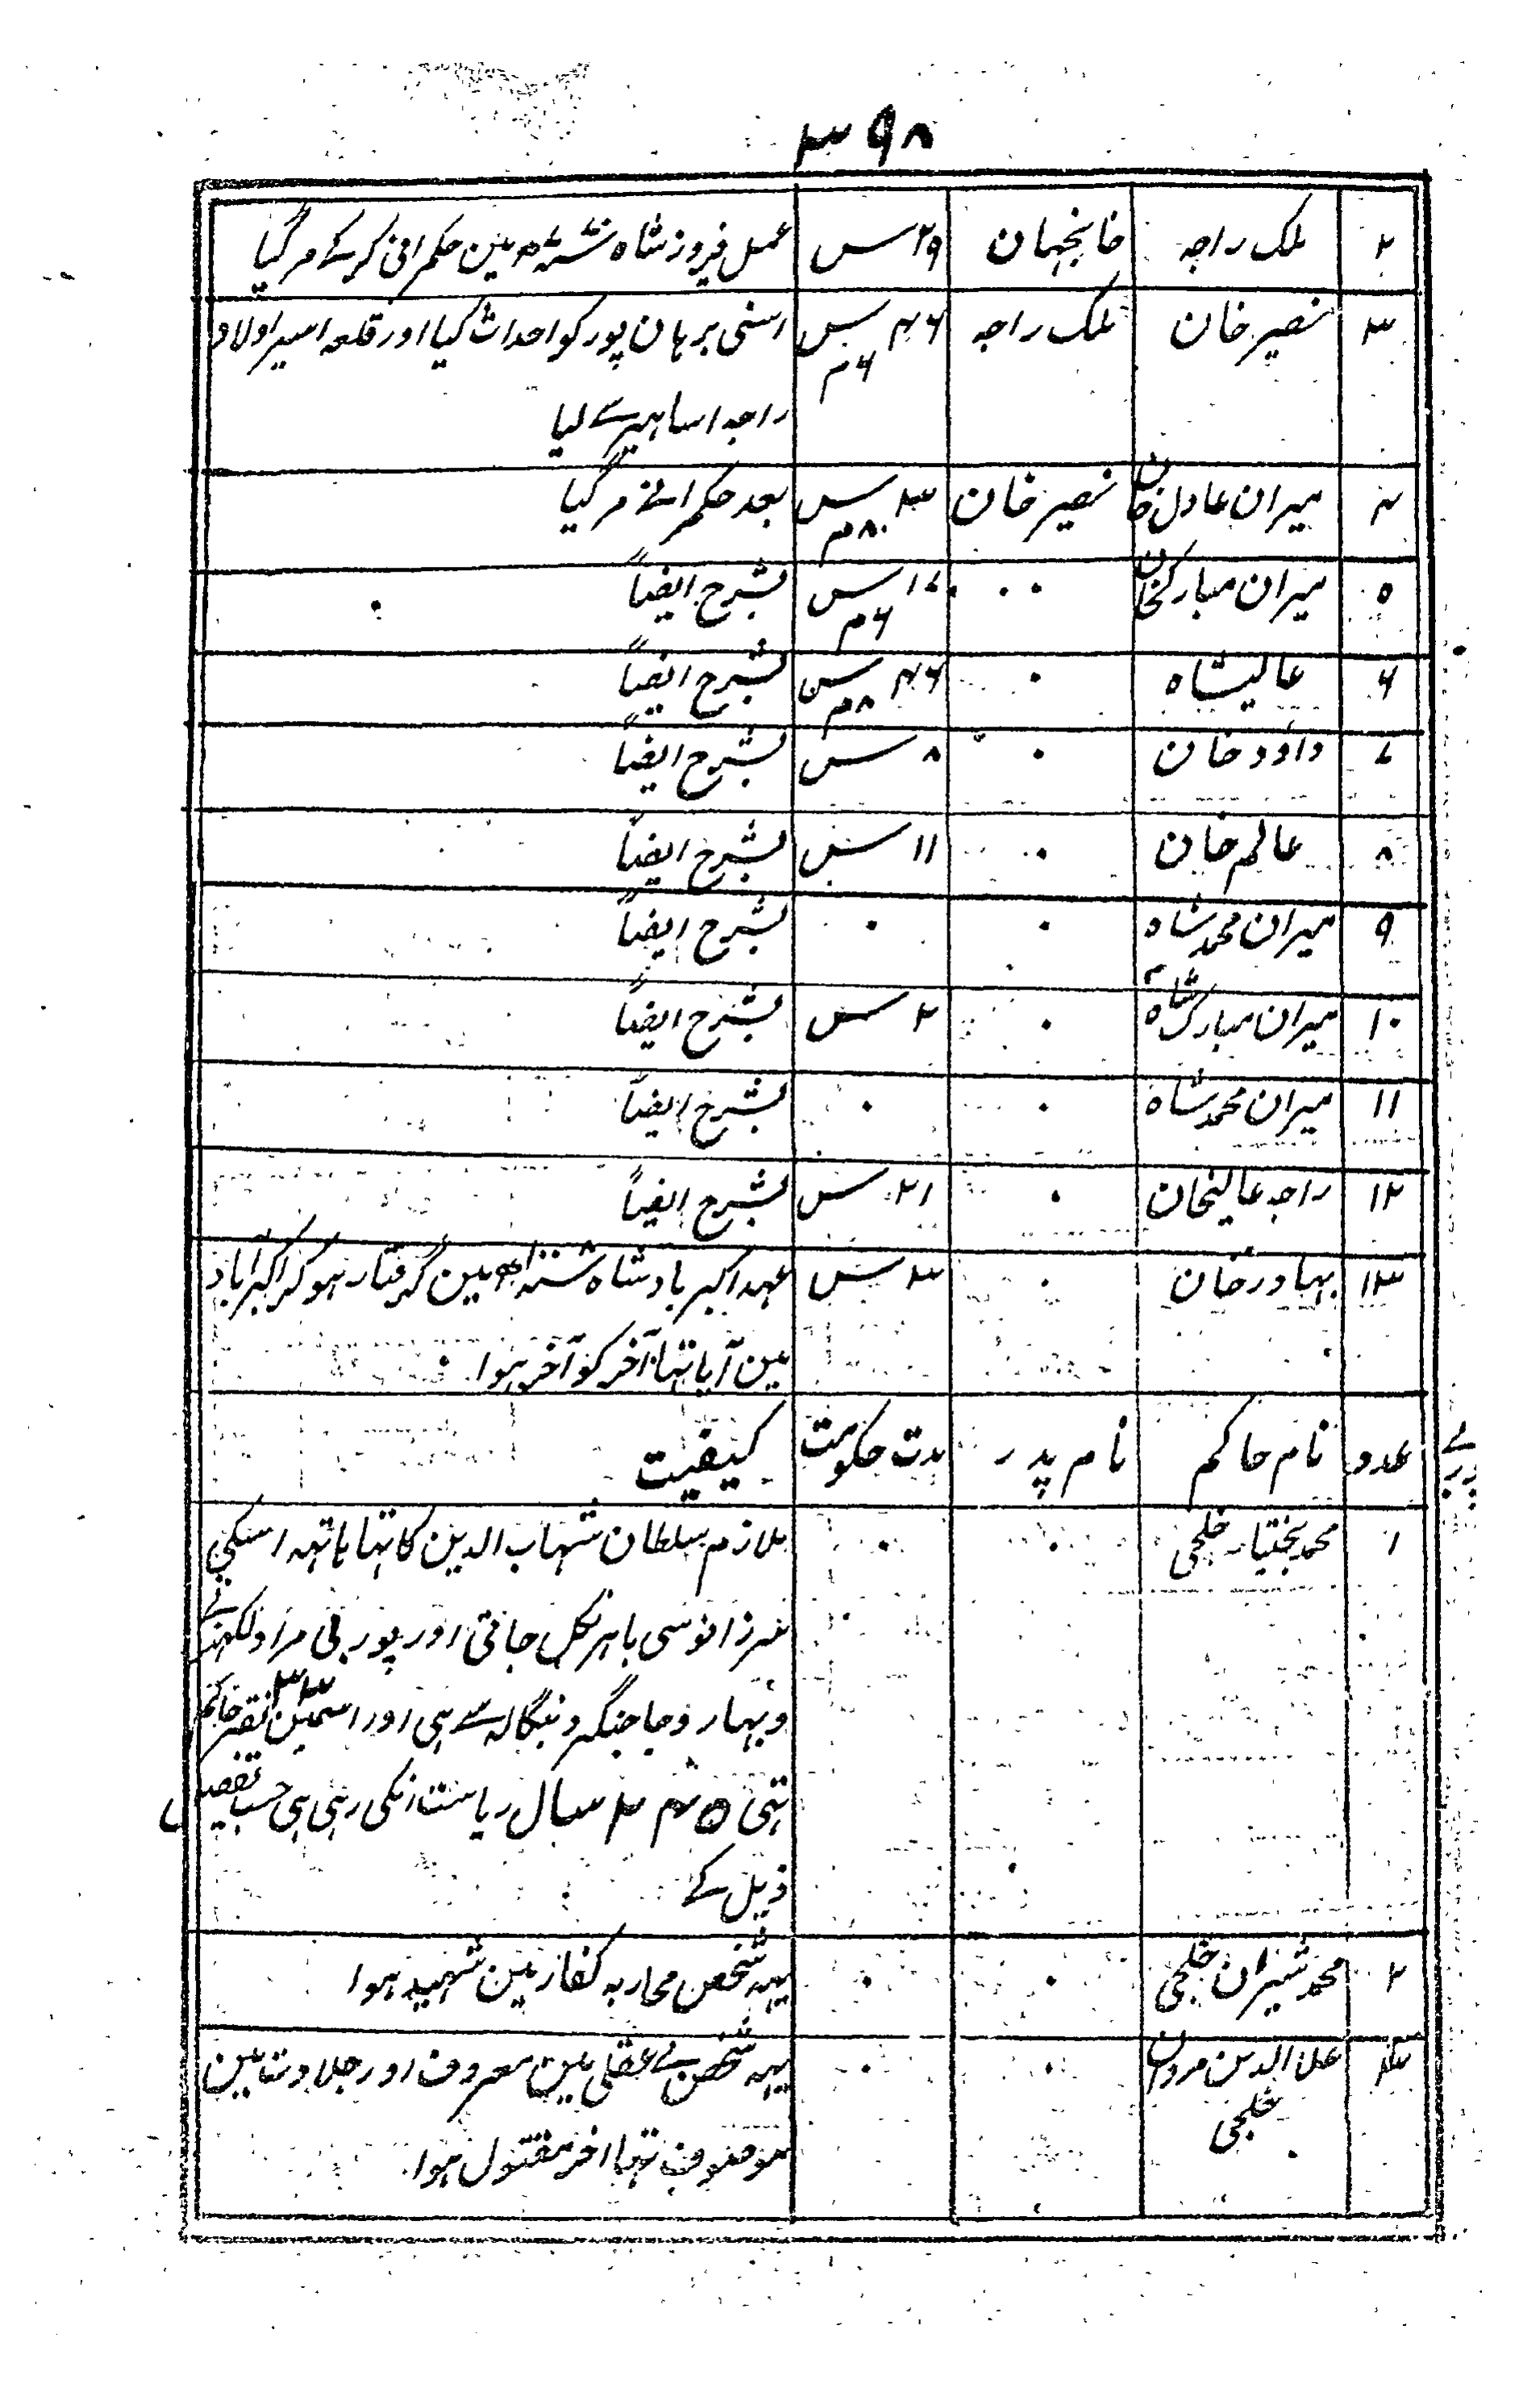 ۳۹۸
۲ ملک راجہ خانجہان ۲۹ س عمل فیروز شاہ مین حکمرانی کرکے مرگیا
۳ نصیر خان ملک راجہ ۴۶ س ۶م اسنی برہان پور کو احداث کیا اور قلعہ اسیر اولاد
راجہ اساہیر سے لیا
۴ میران عادل خان نصیر خان ۳ س ۸م بعد حکمرانے مرگیا
۵ میران مبارکخان ۰ ۰ ۱۷ س ۶م بشرح ایضاً
۶ عالیشاہ ۰ ۴۶ س ۸م بشرح ایضاً
۷ داؤد خان ۰ ۸ س بشرح ایضاً
۸ عالم خان ۰ ۱۱ س بشرح ایضاً
۹ میران محمد شاہ ۰ ۰ بشرح ایضاً
۱۰ میران مبارک شاہ ۰ ۲ س بشرح ایضاً
۱۱ میران محمد شاہ ۰ ۰ بشرح ایضاً
۱۲ راجہ عالیخان ۰ ۲۱ س بشرح ایضاً
۱۳ بہادر خان ۰ ۳ س عہد اکبر بادشاہ سنہ ۱۰۰۸ھ مین گرفتار ہوکر اکبر آباد
مین آیا تہا آخر کو آخر ہوا
عدد نام حاکم نام پدر مدت حکومت کیفیت
۱ محمد بختیار خلجی ۰ ۰ ملازم سلطان شہاب الدین کا تہا ہاتہہ اسکی
سرزانو سی باہر نکل جاتی اور پوربی مراد لکہنوتے
و بہار و جاجنگر و بنگالہ سے ہی اور اسمین ۳۳ نفر حاکم
تہی ۲۴۵ سال ریاست انکی رہی ہی حسب تفصیل
ذیل کے
۲ محمد شیران خلجی ۰ ۰ یہہ شخص محاربہ کفار مین شہید ہوا
۳ علاالدین مردان خلجی ۰ ۰ یہہ شخص بے عقلی مین معروف اور جلادت مین
موصوف تہا اخر مقتول ہوا